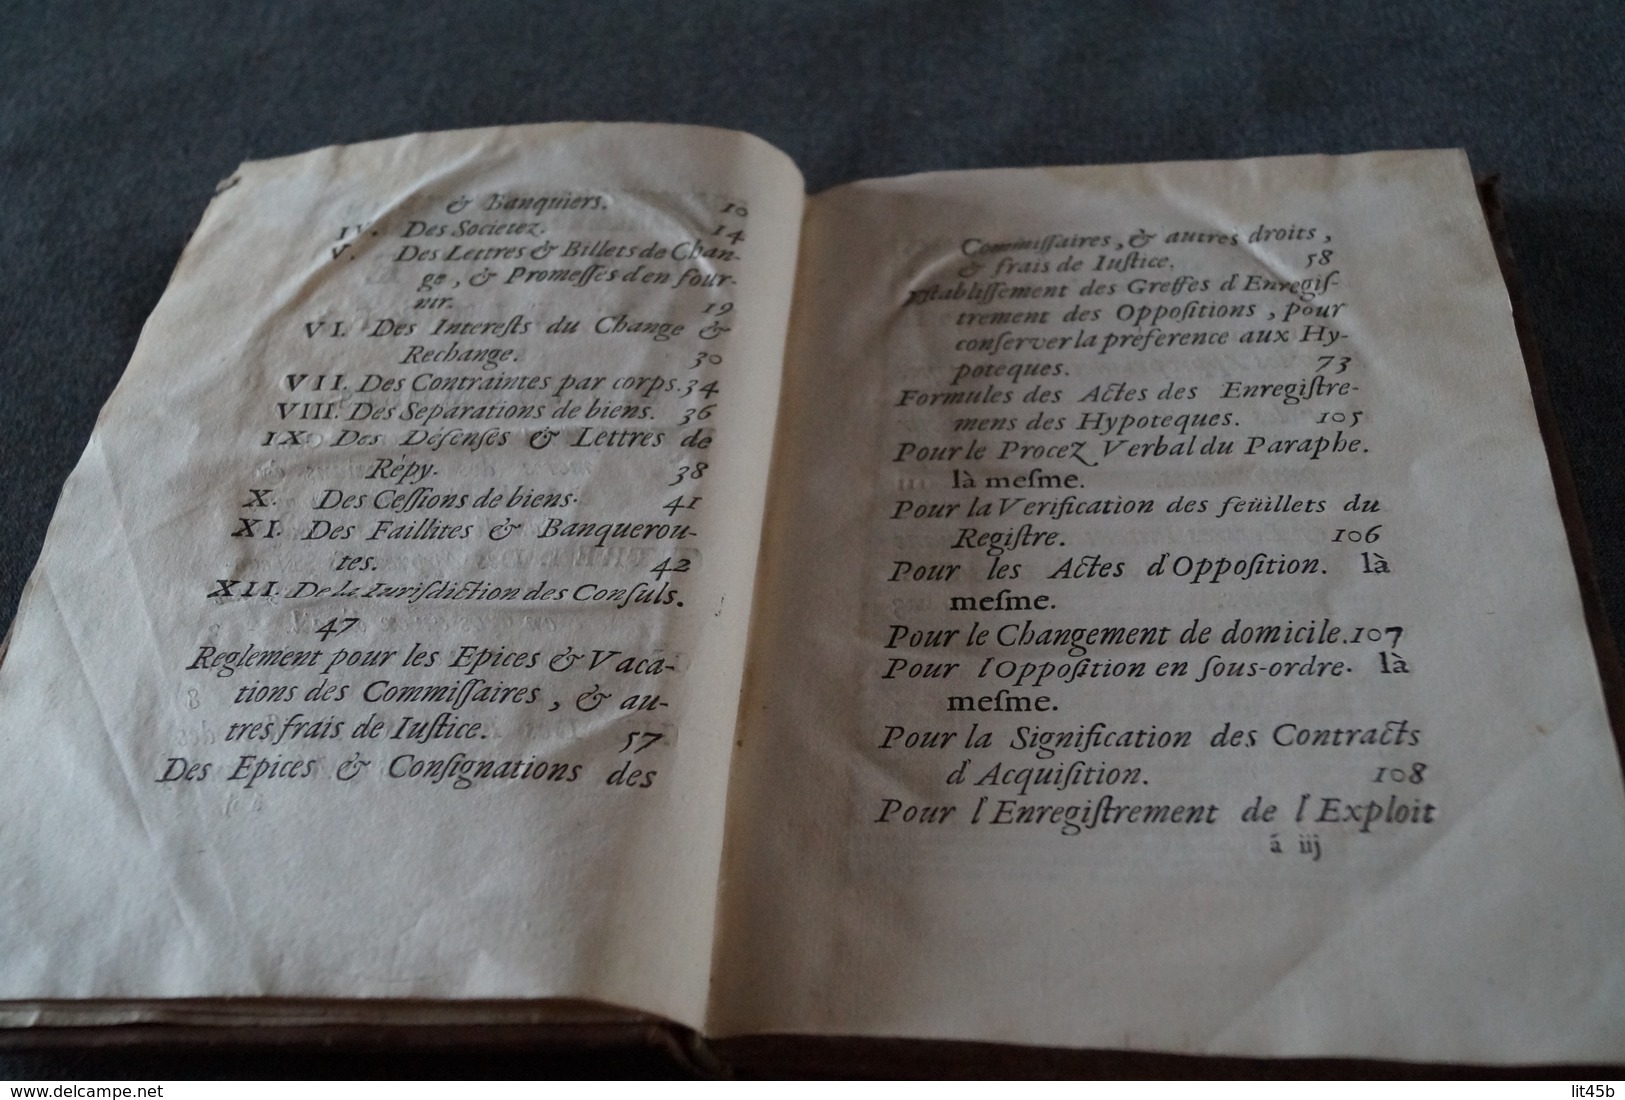 & Banquiers. 10
IV. Des Societez. 14
V. Des Lettres & Billets de Chan-
ge, & Promesses d'en four-
nir. 19
VI. Des Interests du Change &
Rechange. 30
VII. Des Contraintes par corps. 34
VIII. Des Separations de biens. 36
IX. Des Défenses & Lettres de
Répy. 38
X. Des Cessions de biens. 41
XI. Des Faillites & Banquerou-
tes. 42
XII. De la Iurisdiction des Consuls.
47
Reglement pour les Epices & Vaca-
tions des Commissaires, & au-
tres frais de Iustice. 57
Des Epices & Consignations des
Commissaires, & autres droits,
& frais de Iustice. 58
Establissement des Greffes d'Enregis-
trement des Oppositions, pour
conserver la préference aux Hy-
poteques. 73
Formules des Actes des Enregistre-
mens des Hypoteques. 105
Pour le Procez Verbal du Paraphe.
là mesme.
Pour la Verification des feüillets du
Registre. 106
Pour les Actes d'Opposition. là
mesme.
Pour le Changement de domicile. 107
Pour l'Opposition en sous-ordre. là
mesme.
Pour la Signification des Contracts
d'Acquisition. 108
Pour l'Enregistrement de l'Exploit
ã iij
© delcampe.net
lit45b